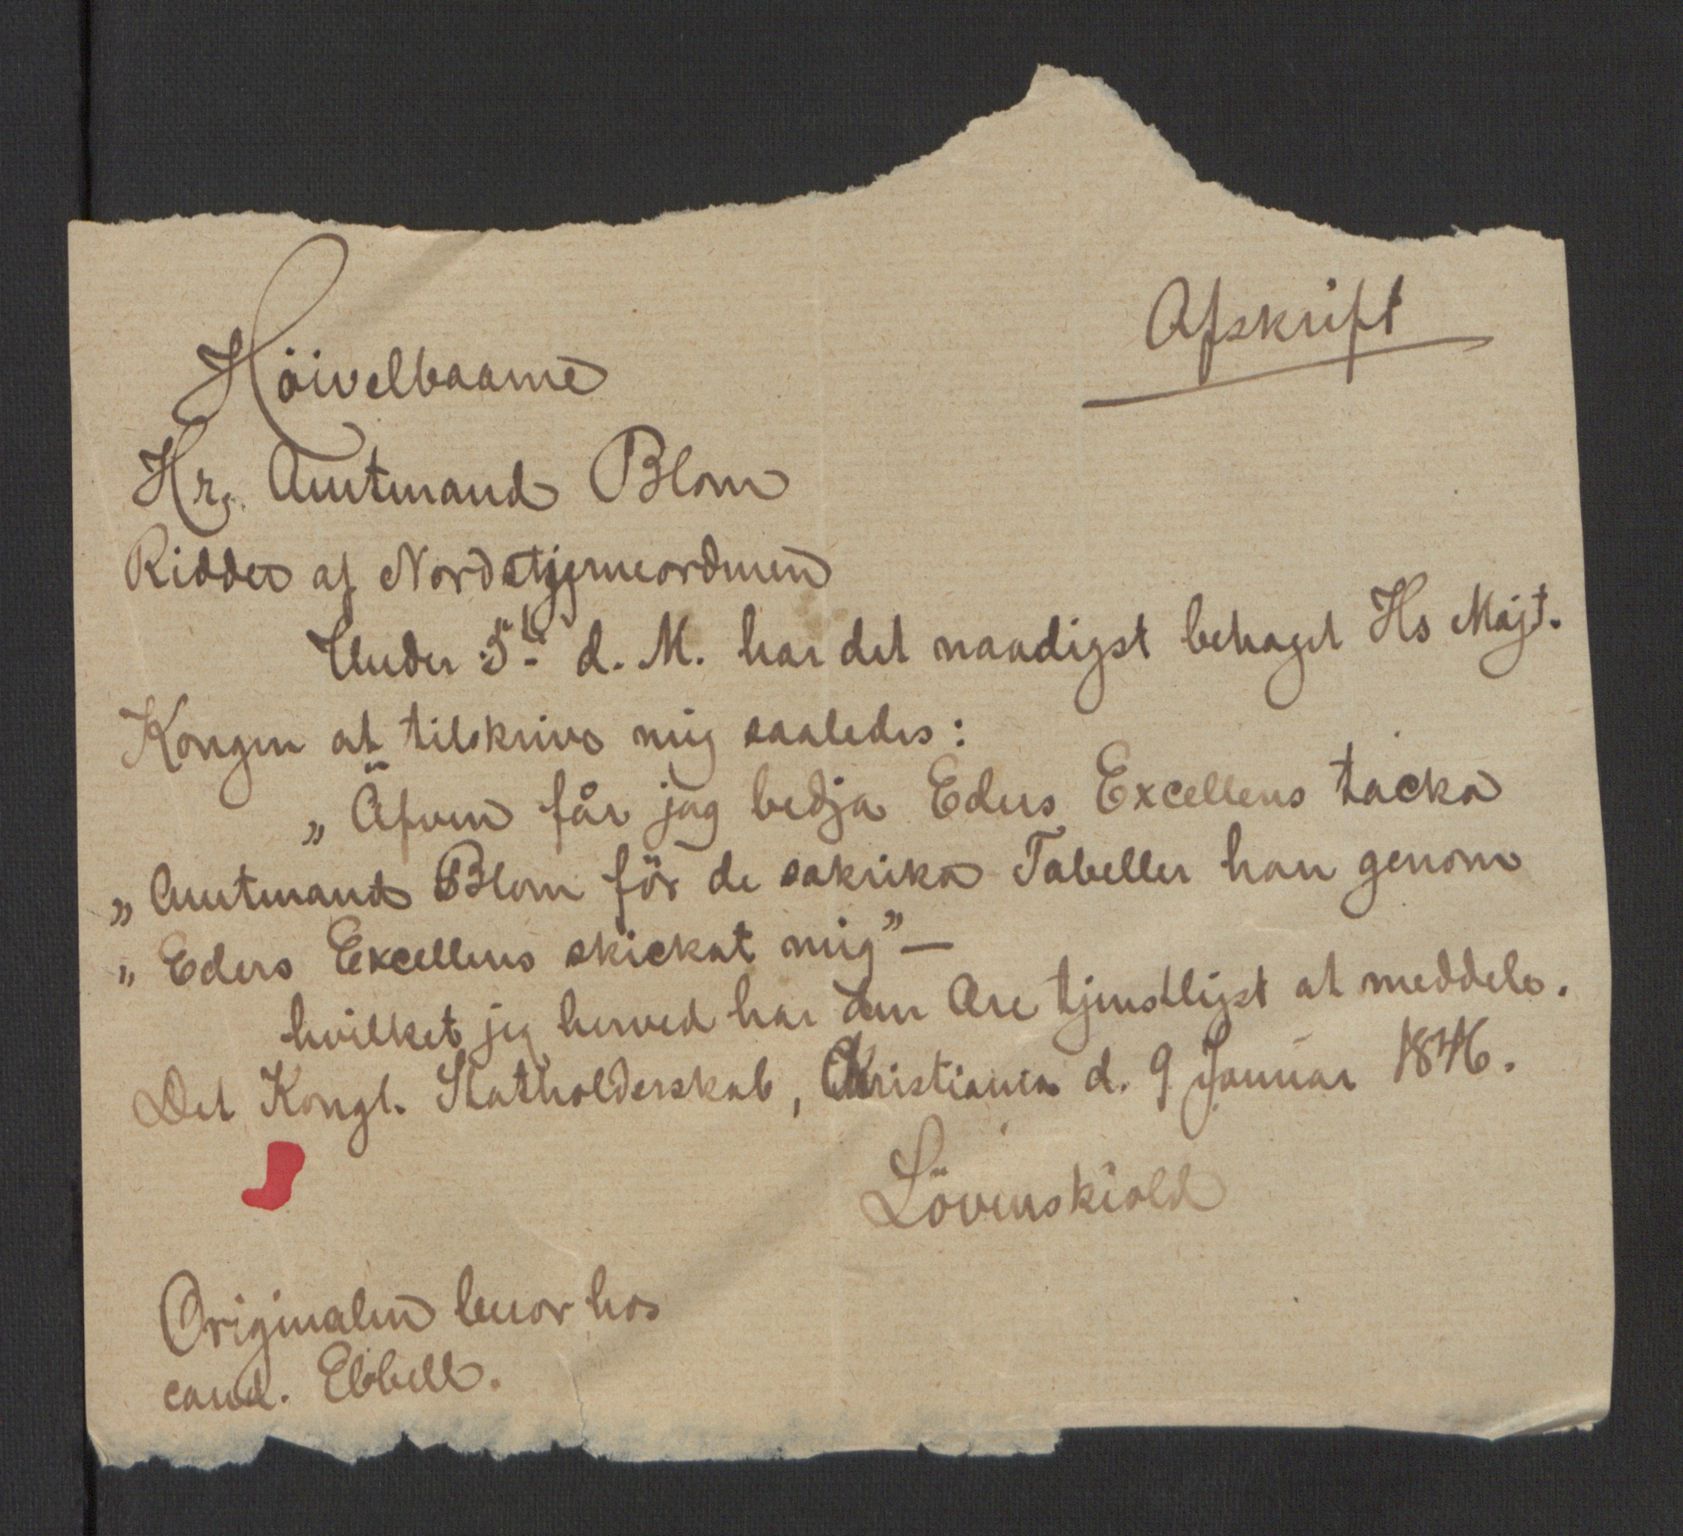 Afskrift
Höivelbaarne
Hr. Amtmand Blom
Ridder af Nordstjerneordenen
Under 5te d. M. har det naadigst behaget Hs Majt.
Kongen at tilskrive mig saaledes:
„Äfven får jag bedja Eders Excellens tacka
„Amtmand Blom för de sakrika Tabeller han genom
„Eders Excellens skickat mig”—
hvilket jeg herved har den Ære tjenstligst at meddele.
Det Kongl. Statholderskab, Christiania d. 9 Januar 1846.
Lövenskiold
Originalen beror hos
cand. Ebbell.